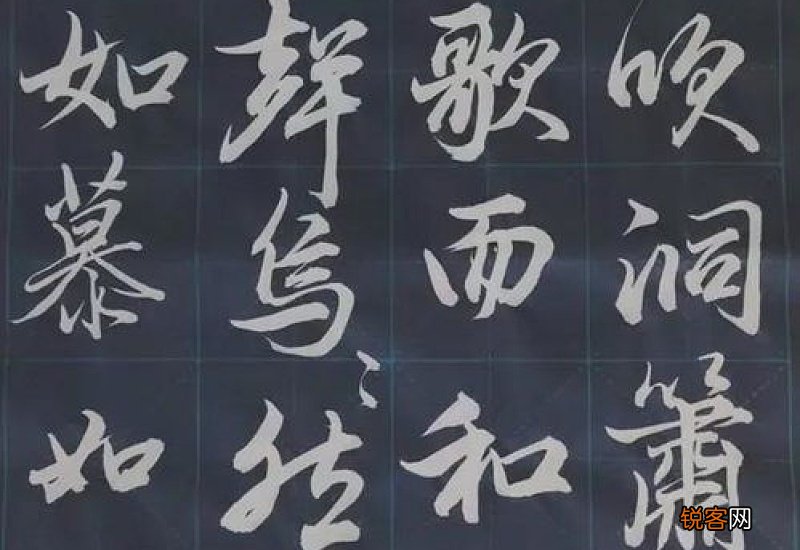 吹洞簫
歌而和
聲烏々然
如慕如
锐客网